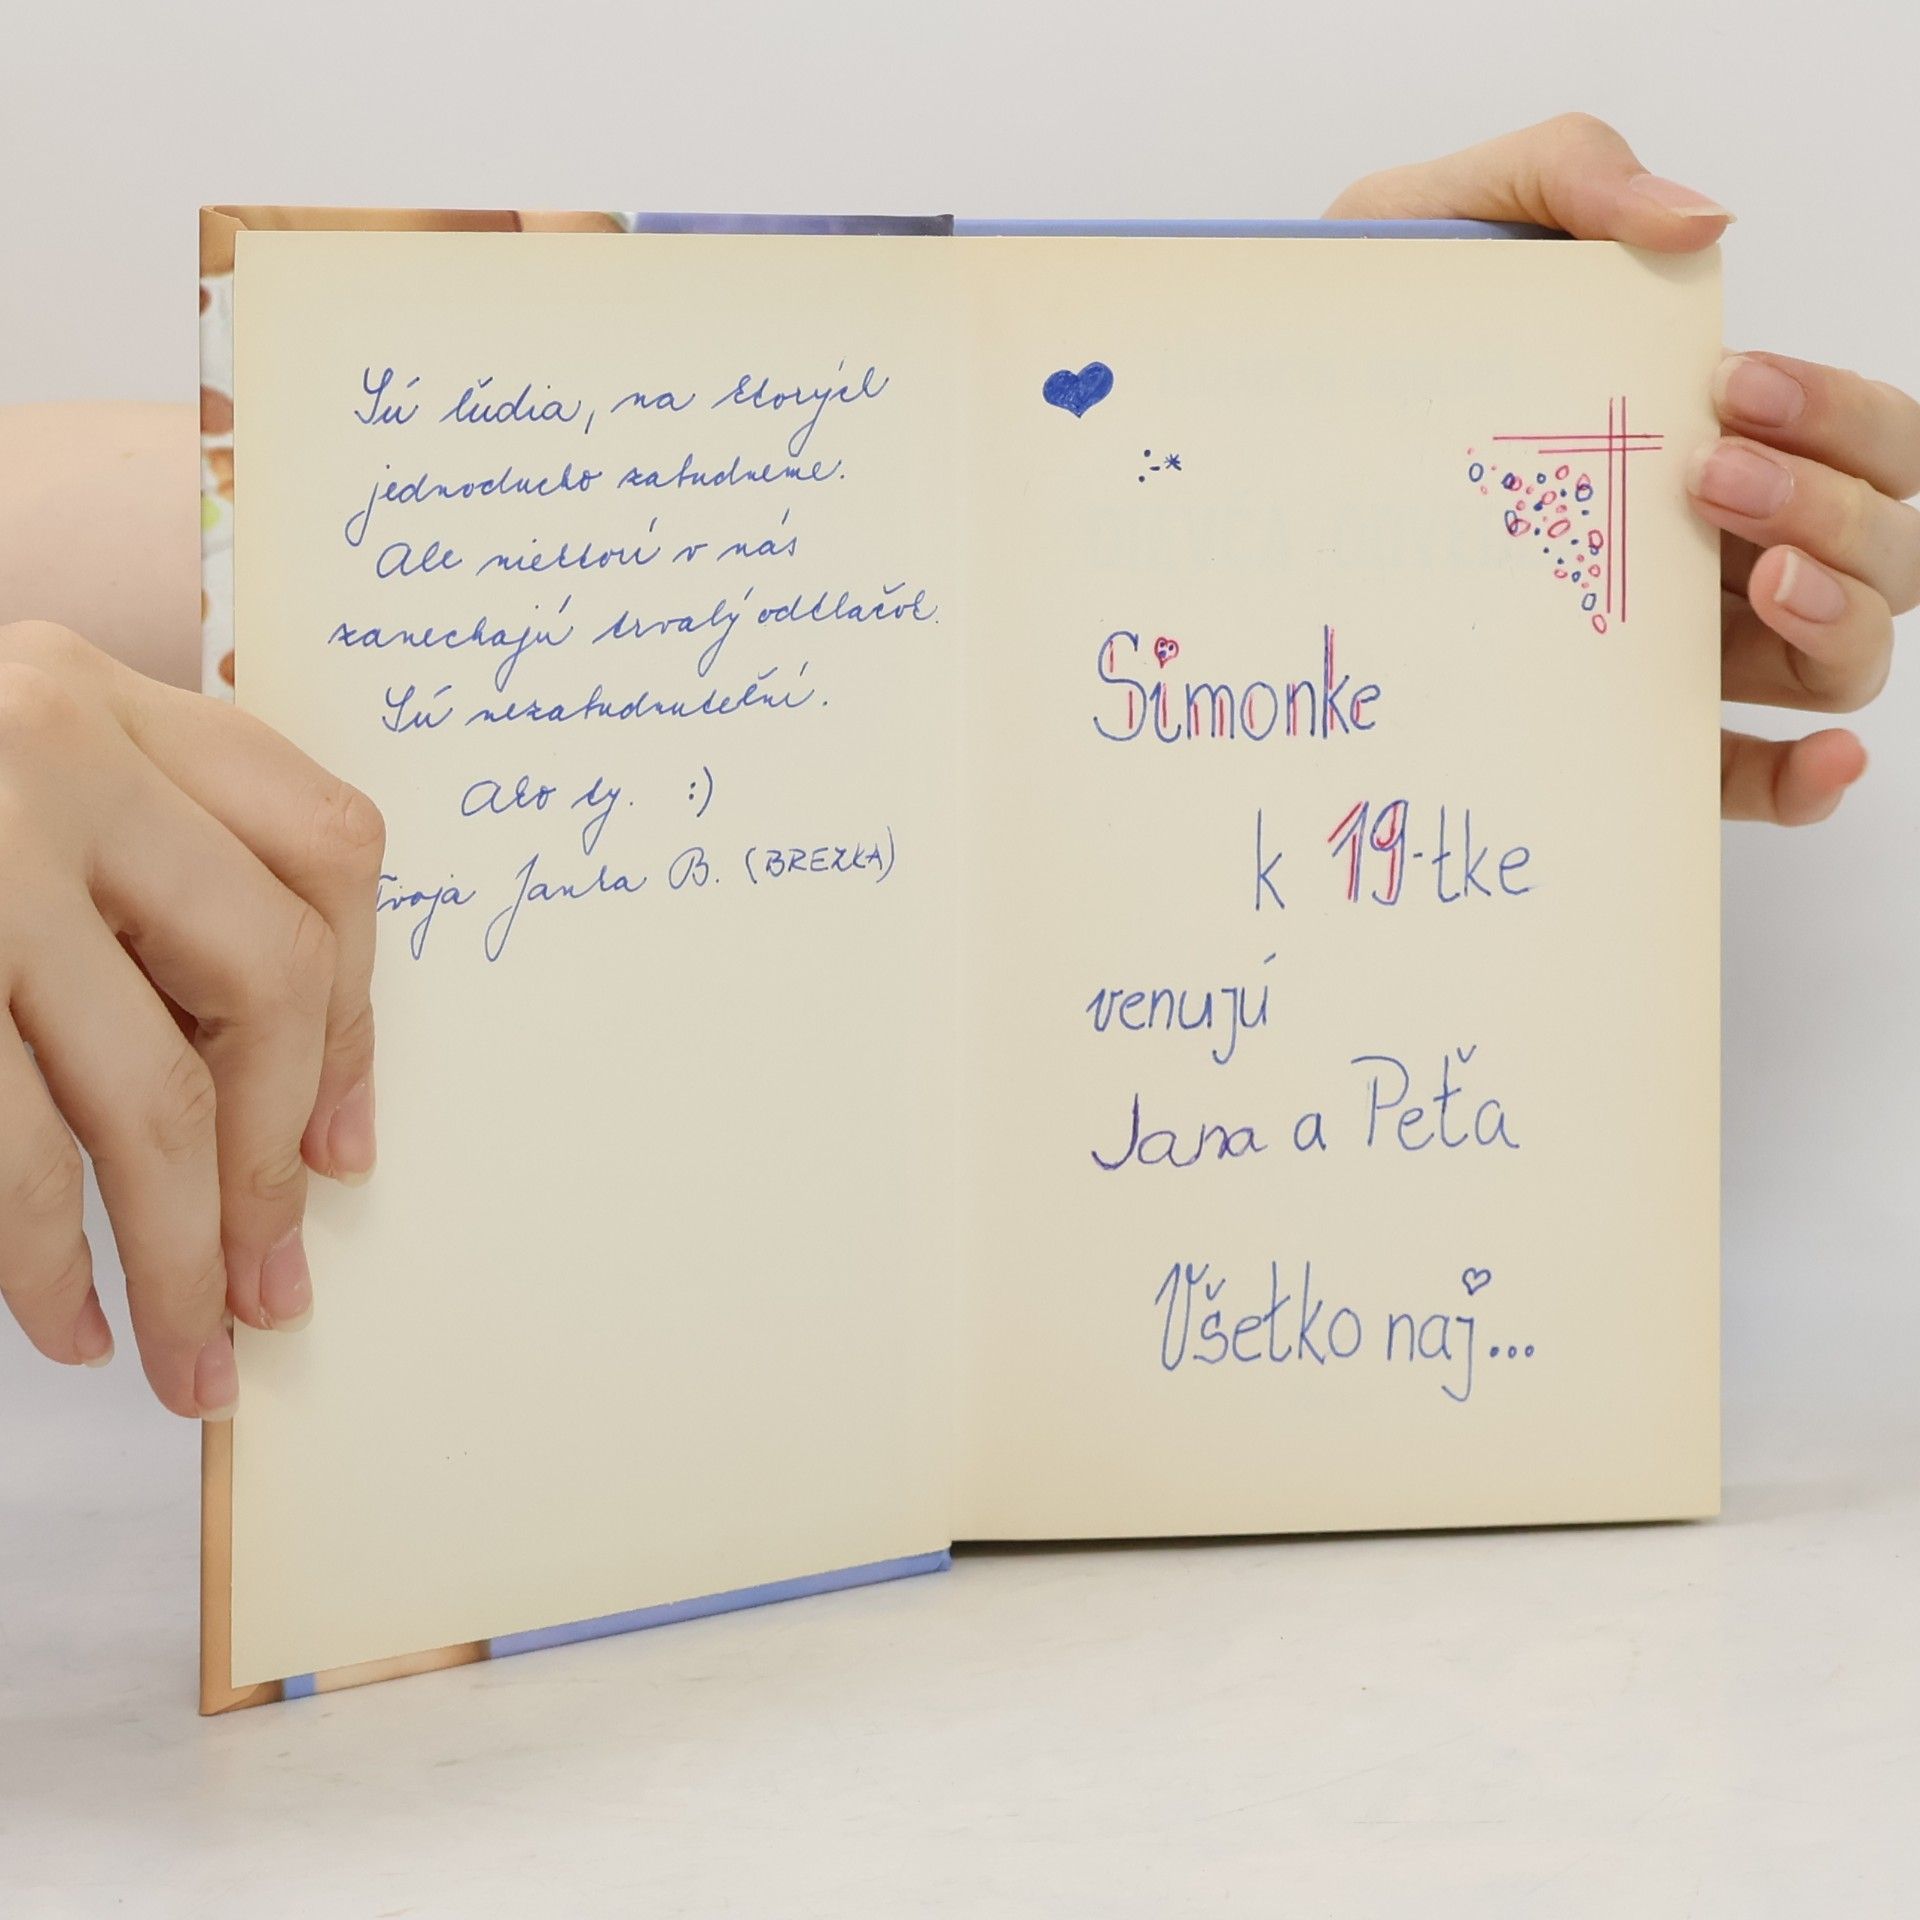 Sú ľudia, na ktorých
jednoducho zabudneme.
Ale niektorí v nás
zanechajú trvalý odtlačok.
Sú nezabudnuteľní.
Ako ty. :)
Tvoja Janka B. (BREZKA)
:-*
Simonke
k 19-tke
venujú
Jana a Peťa
Všetko naj...